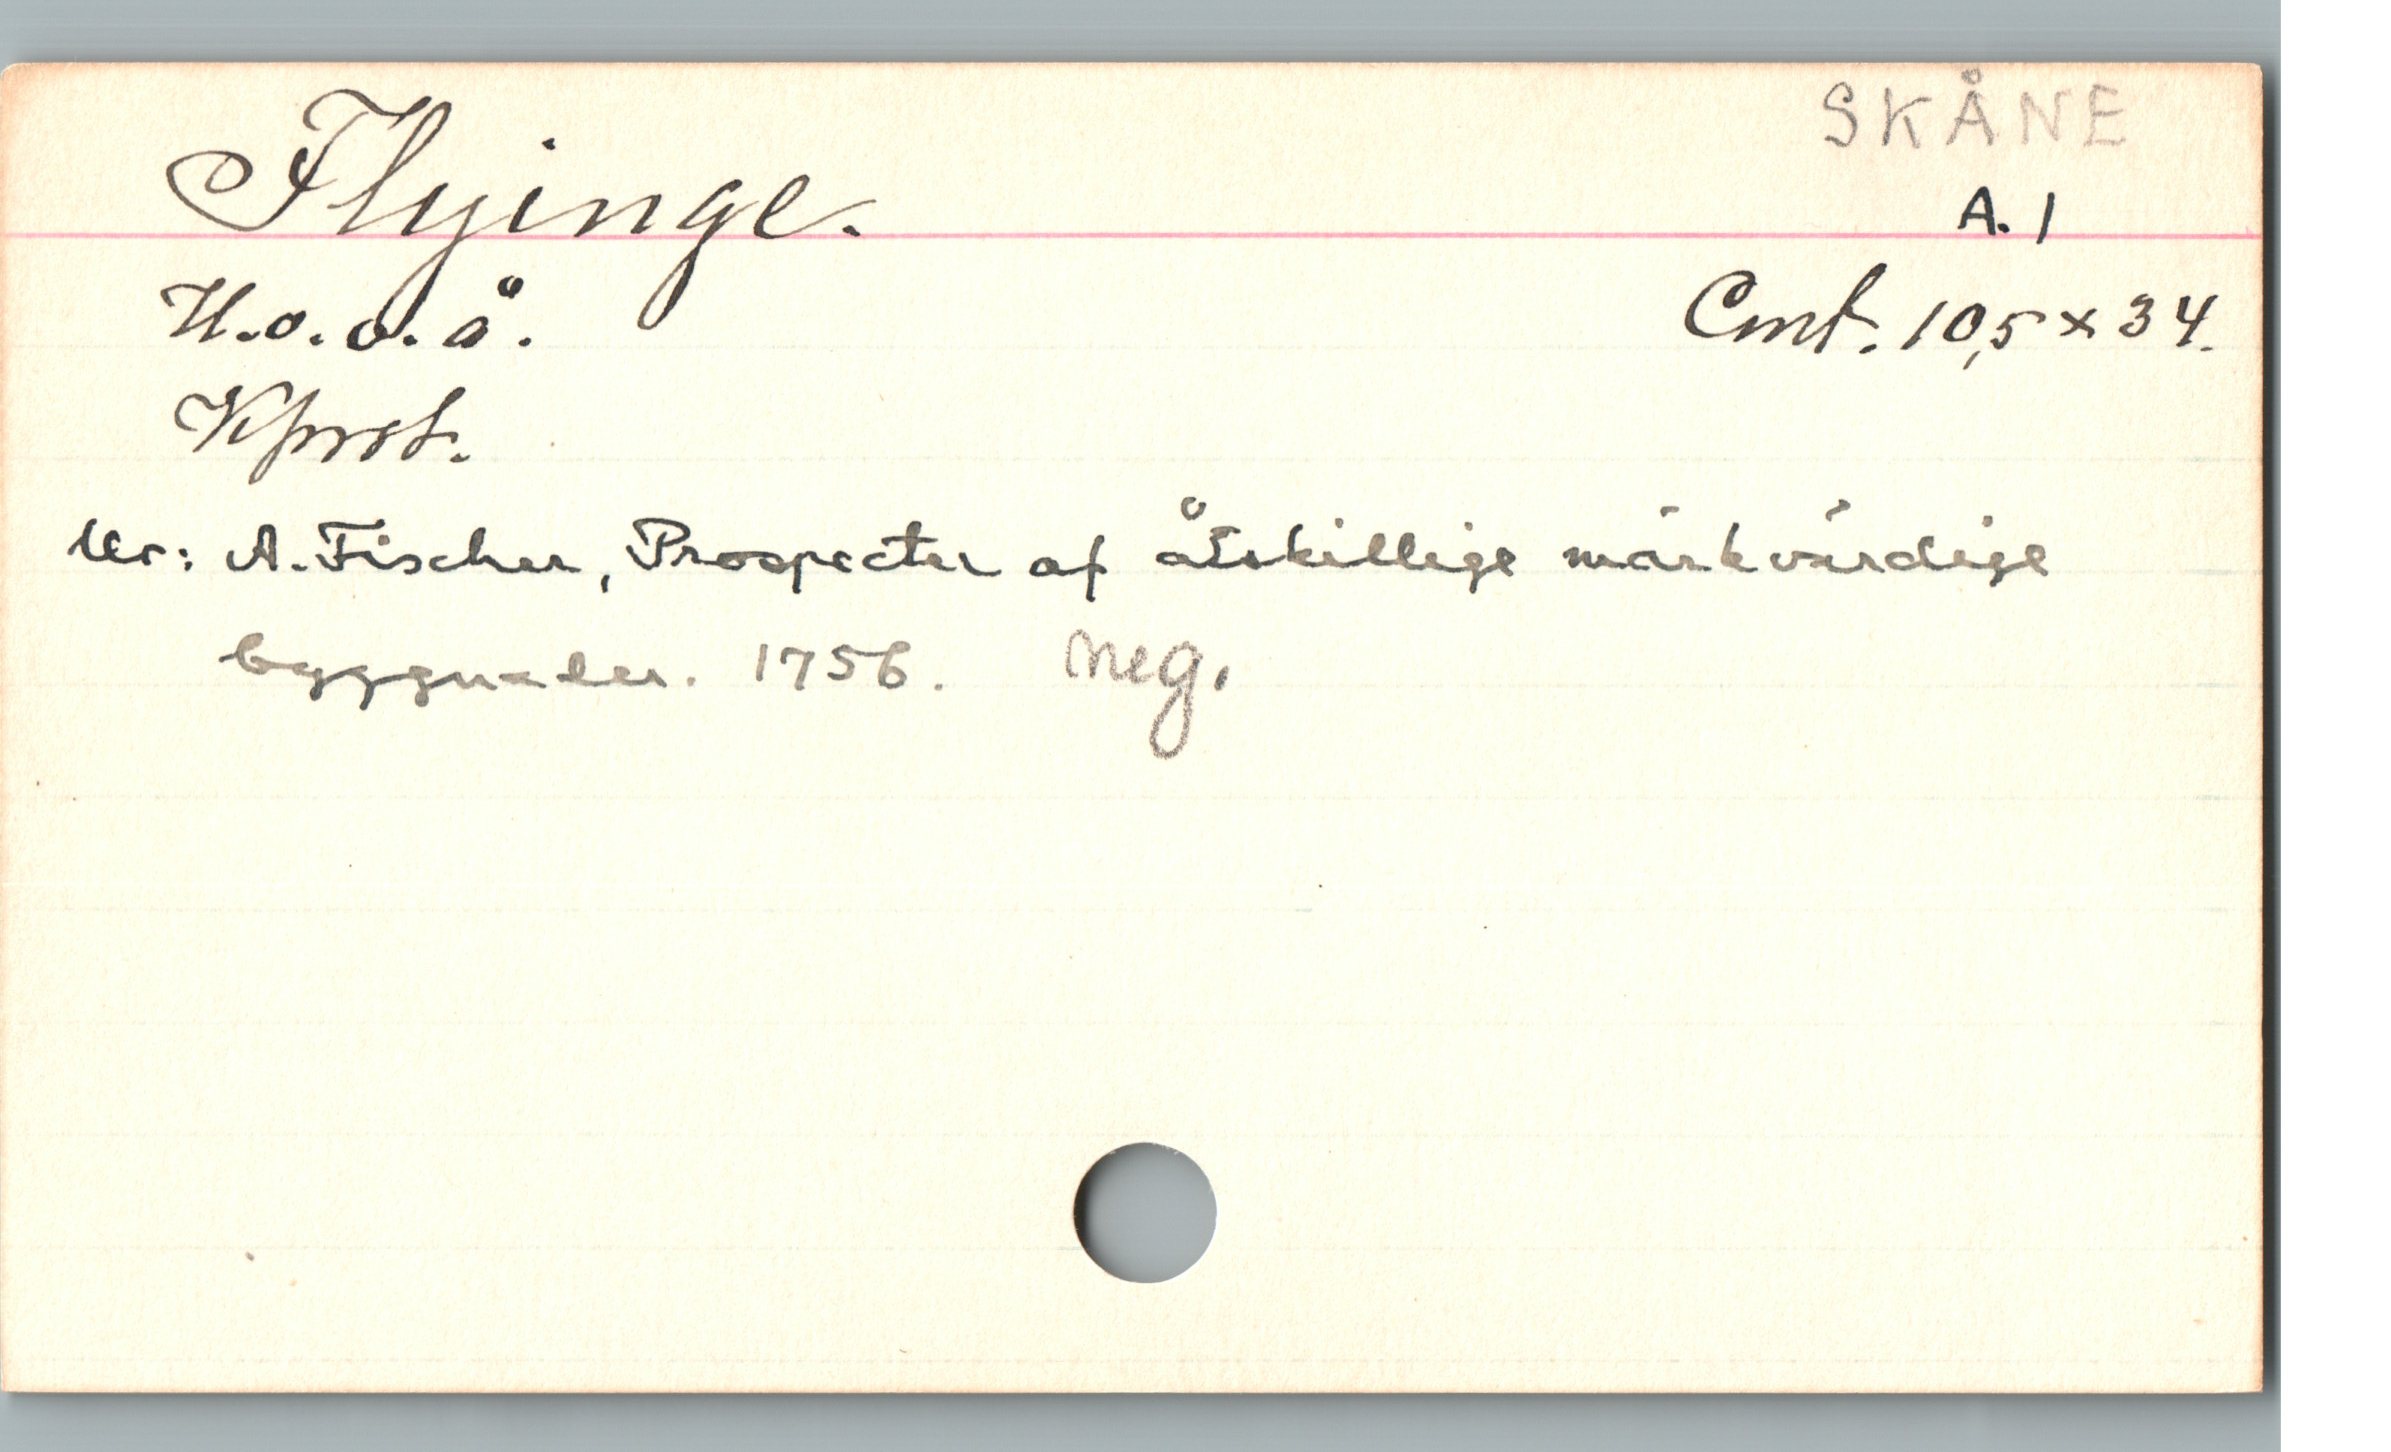 SKÅNE
Flyinge.
A. 1
U.o.o.å. Cmt. 10,5 x 34.
Kprst.
Ur: A. Fischer, Prospecter af åtskillige märkvärdige
byggnader. 1756. neg.